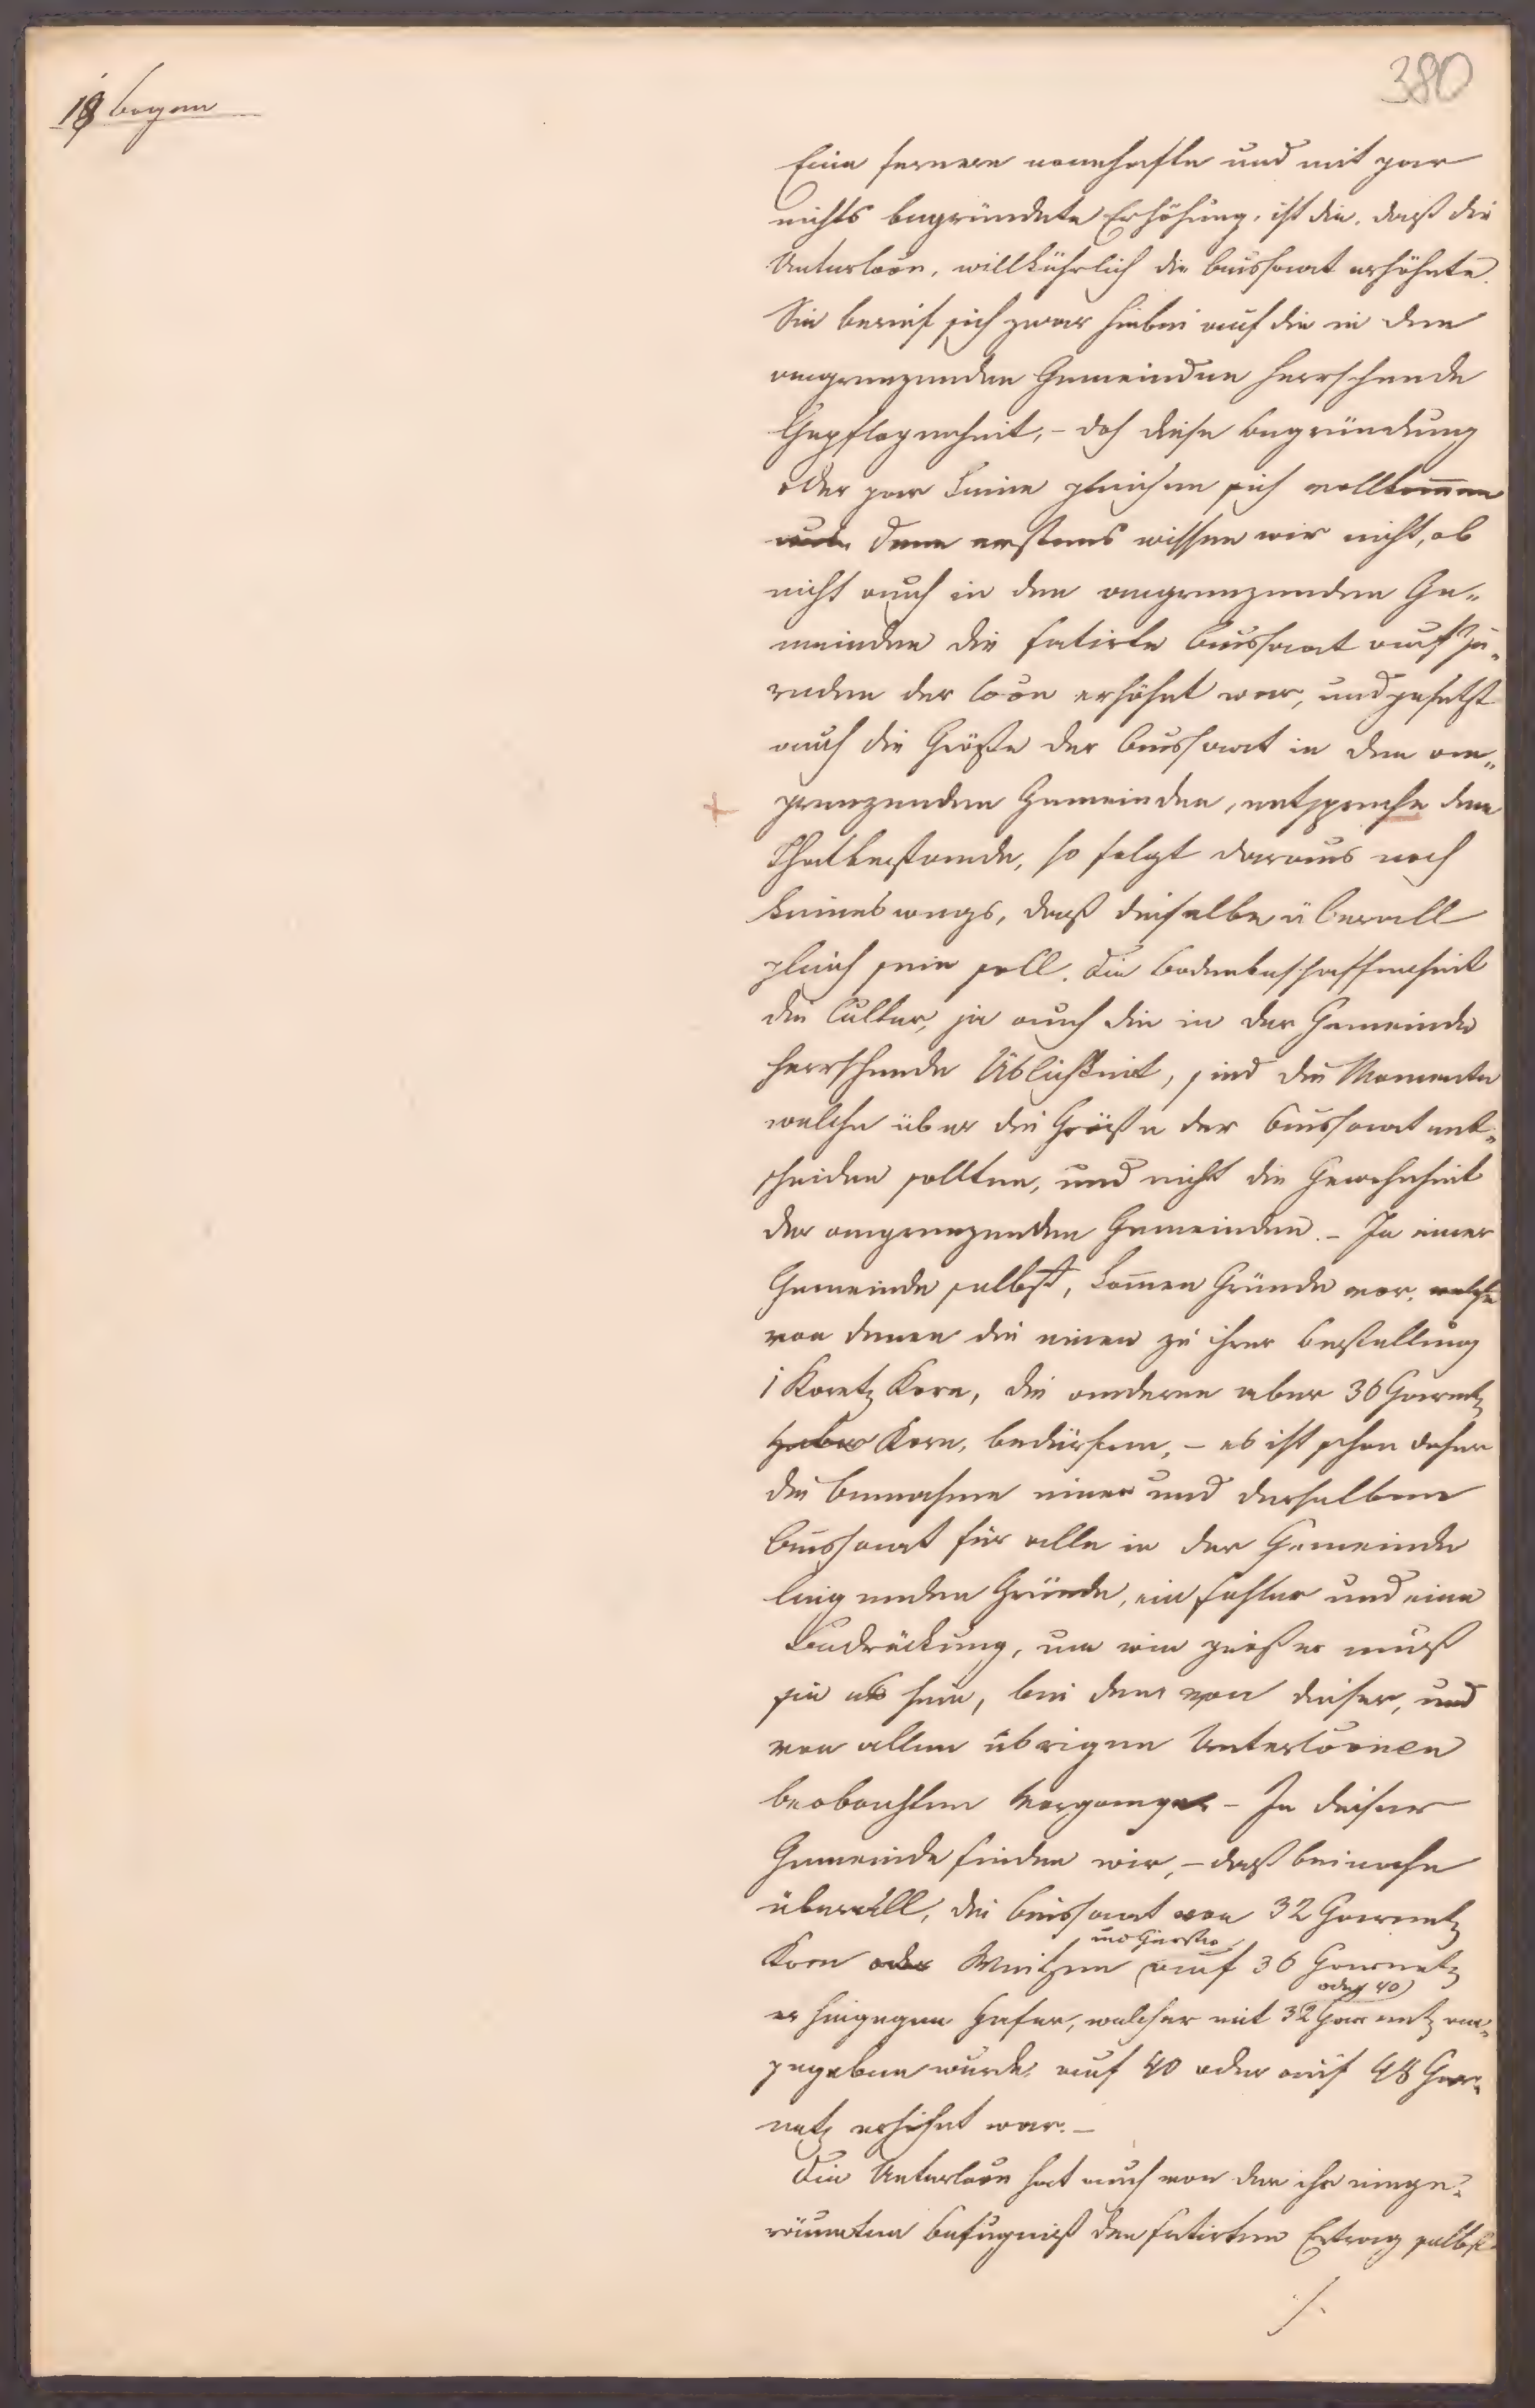 18 bogen
380
Eine fernere namhafte und mit gar
nichts begründete Erhöhung, ist die, daß die
Unterloon, willkührlich die Aussaat erhöhnte.
Sie berief sich zwar hiebei auf die in den
angrenzenden Gemeinden herrschende
Gepflogenheit, – doch diese Begründung
oder gar keine gleichen sich vollkommen
denn erstens wissen wir nicht, ob
nicht auch in den angrenzenden Ge„
meinden die fatirte Aussaat auf Zu„
reden der Coon erhöht war, und gesetzt
auch die Größe der Aussaat in den an„
grenzenden Gemeinden, entspreche dem
Thatbestande, so folgt daraus noch
keineswegs, daß dieselbe überall
gleich sein soll. Die Bodenbeschaffenheit
die Cultur, ja auch die in der Gemeinde
herrschende Üblichkeit, sind die Momente
welche über die Größe der Aussaat ent„
scheiden sollten, und nicht die Gewohnheit
der angrenzenden Gemeinden. – In einer
Gemeinde selbst, kom̅en Gründe vor, welche
von denen die einen zu ihrer Bestellung
1 Koretz Korn, die anderen aber 36 Garnetz
Haber Korn, bedürfen, – es ist schon daher
die Annahme einer und derselben
Aussaat für alle in der Gemeinde
liegenden Gründe, ein Fehler und eine
Bedrückung, um wie größer muß
sie es sein, bei dem von dieser, und
von allen übrigen Unterloonen
beobachten Vorgange – In dieser
Gemeinde finden wir, – daß beinahe
überall, die Aussaat von 32 Garnetz
und Gerste
Korn oder Weitzen auf 36 Garnetz
oder 40
er hingegen Hafer, welcher mit 32 Garnetz an„
gegeben wurde, auf 40 oder auf 48 Gar„
netz erhöht war. –
Die Unterloon hat auch von der ihr einge„
räumten Befugniß den fatirten Ertrag selbst
./.